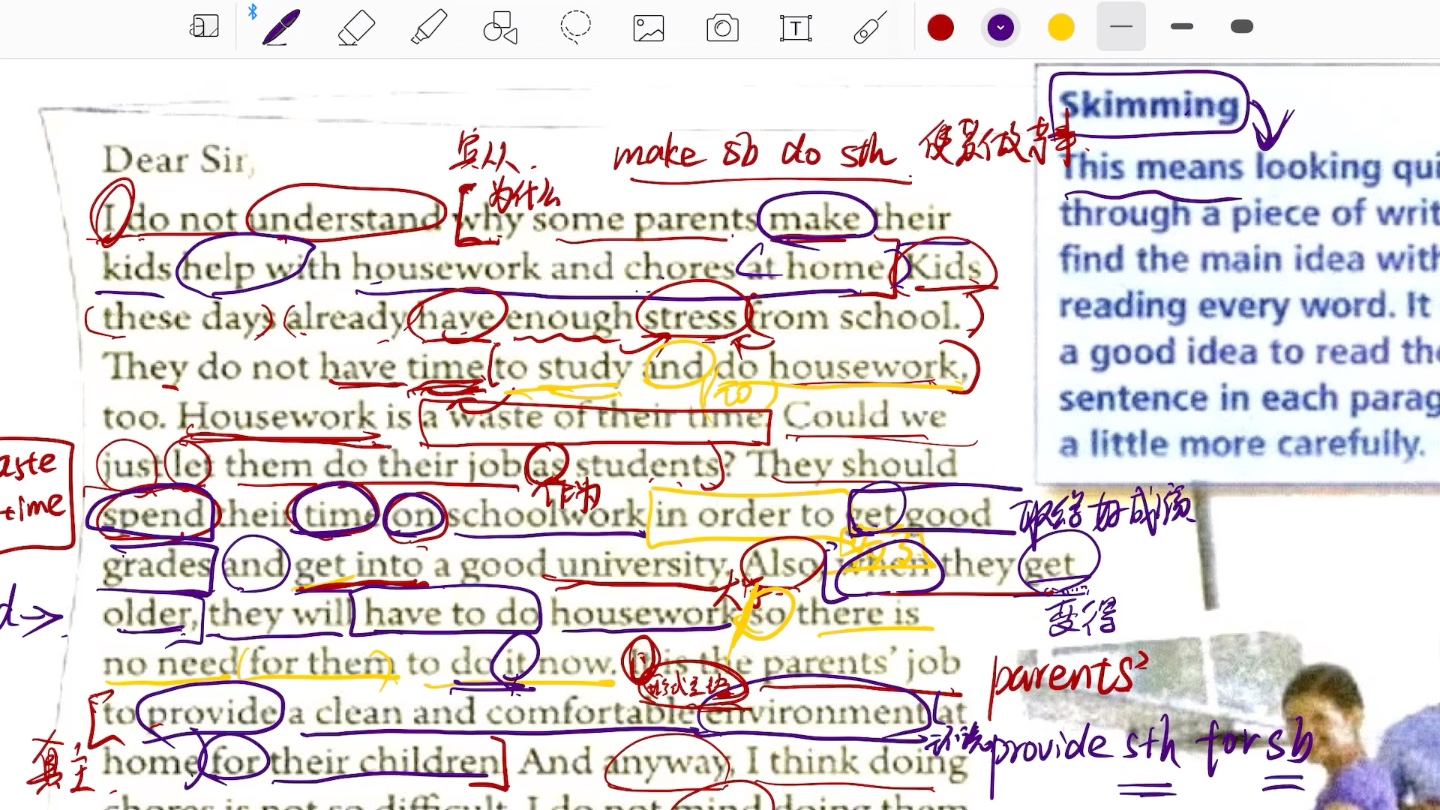 Skimming
This means looking qui
through a piece of writ
find the main idea with
reading every word. It
a good idea to read the
sentence in each parag
a little more carefully.
宾从.
make sb do sth 使某人做某事.
Dear Sir,
为什么
I do not understand why some parents make their
kids help with housework and chores at home. Kids
these days already have enough stress from school.
They do not have time to study and do housework,
to
too. Housework is a waste of their time. Could we
just let them do their job as students? They should
aste
time
作为
spend their time on schoolwork in order to get good
取得好成绩
grades and get into a good university. Also, when they get
大学
变得
older, they will have to do housework so there is
no need for them to do it now. It is the parents' job
形式主语
parents'
to provide a clean and comfortable environment at
环境
provide sth for sb
真主
home for their children. And anyway, I think doing
chores is not so difficult. I do not mind doing them